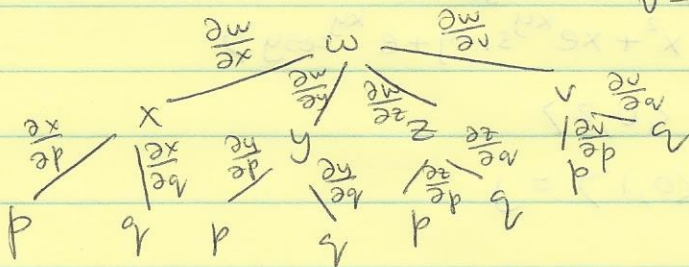 w
∂w/∂x ∂w/∂y ∂w/∂z ∂w/∂v
x y z v
∂x/∂p ∂x/∂q ∂y/∂p ∂y/∂q ∂z/∂p ∂z/∂q ∂v/∂p ∂v/∂q
p q p q p q p q